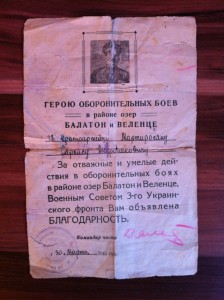 ГЕРОЮ ОБОРОНИТЕЛЬНЫХ БОЕВ
в районе озер
БАЛАТОН И ВЕЛЕНЦЕ
За отважные и умелые дей-
ствия в оборонительных боях
в районе озер Балатон и Веленце,
Военным Советом 3-го Украин-
ского фронта Вам объявлена
БЛАГОДАРНОСТЬ.
Командир части
30 Марта